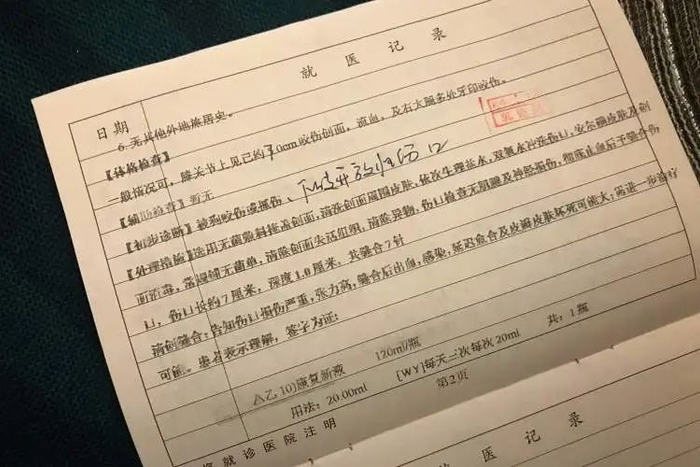 就医记录
日期
6.无其他外地旅居史。
【体格检查】
一般情况可，膝关节上见已约7.0cm咬伤创面，流血，及右大腿多处牙印咬伤。
【辅助检查】暂无
【初步诊断】被狗咬伤或抓伤、下肢开放性伤口
【处理措施】选用无菌敷料掩盖创面，清洗创面周围皮肤，依次生理盐水，双氧水冲洗伤口，安尔碘皮肤及创
面消毒，常规铺无菌单，清除创面失活组织，清除异物，伤口检查无肌腱及神经损伤，彻底止血后予缝合伤
口，伤口长约7厘米，深度1.0厘米，共缝合7针
清创缝合：告知伤口损伤严重，张力高，缝合后出血，感染，延迟愈合及皮瓣皮肤坏死可能大，需进一步治疗
可能。患者表示理解，签字为证：
(乙10)康复新液 120ml/瓶 共：1瓶
用法：20.00ml [WY]每天三次每次20ml
第2页
就诊医院注明
就医记录